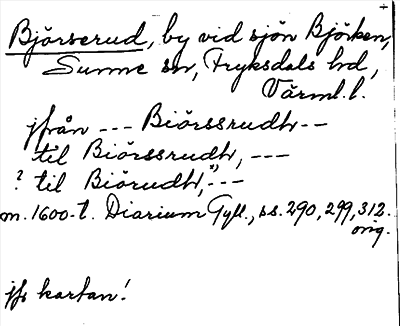 Björserud, by vid sjön Björken,
Sunne sn, Fryksdals hd,
Värml.l.
jfrån --- Biörssrudh --
til Biörssrudh, ---
? til Biörudh, ---
m. 1600-t. Diarium Gyll., ss. 290, 299, 312.
orig.
jfr kartan!